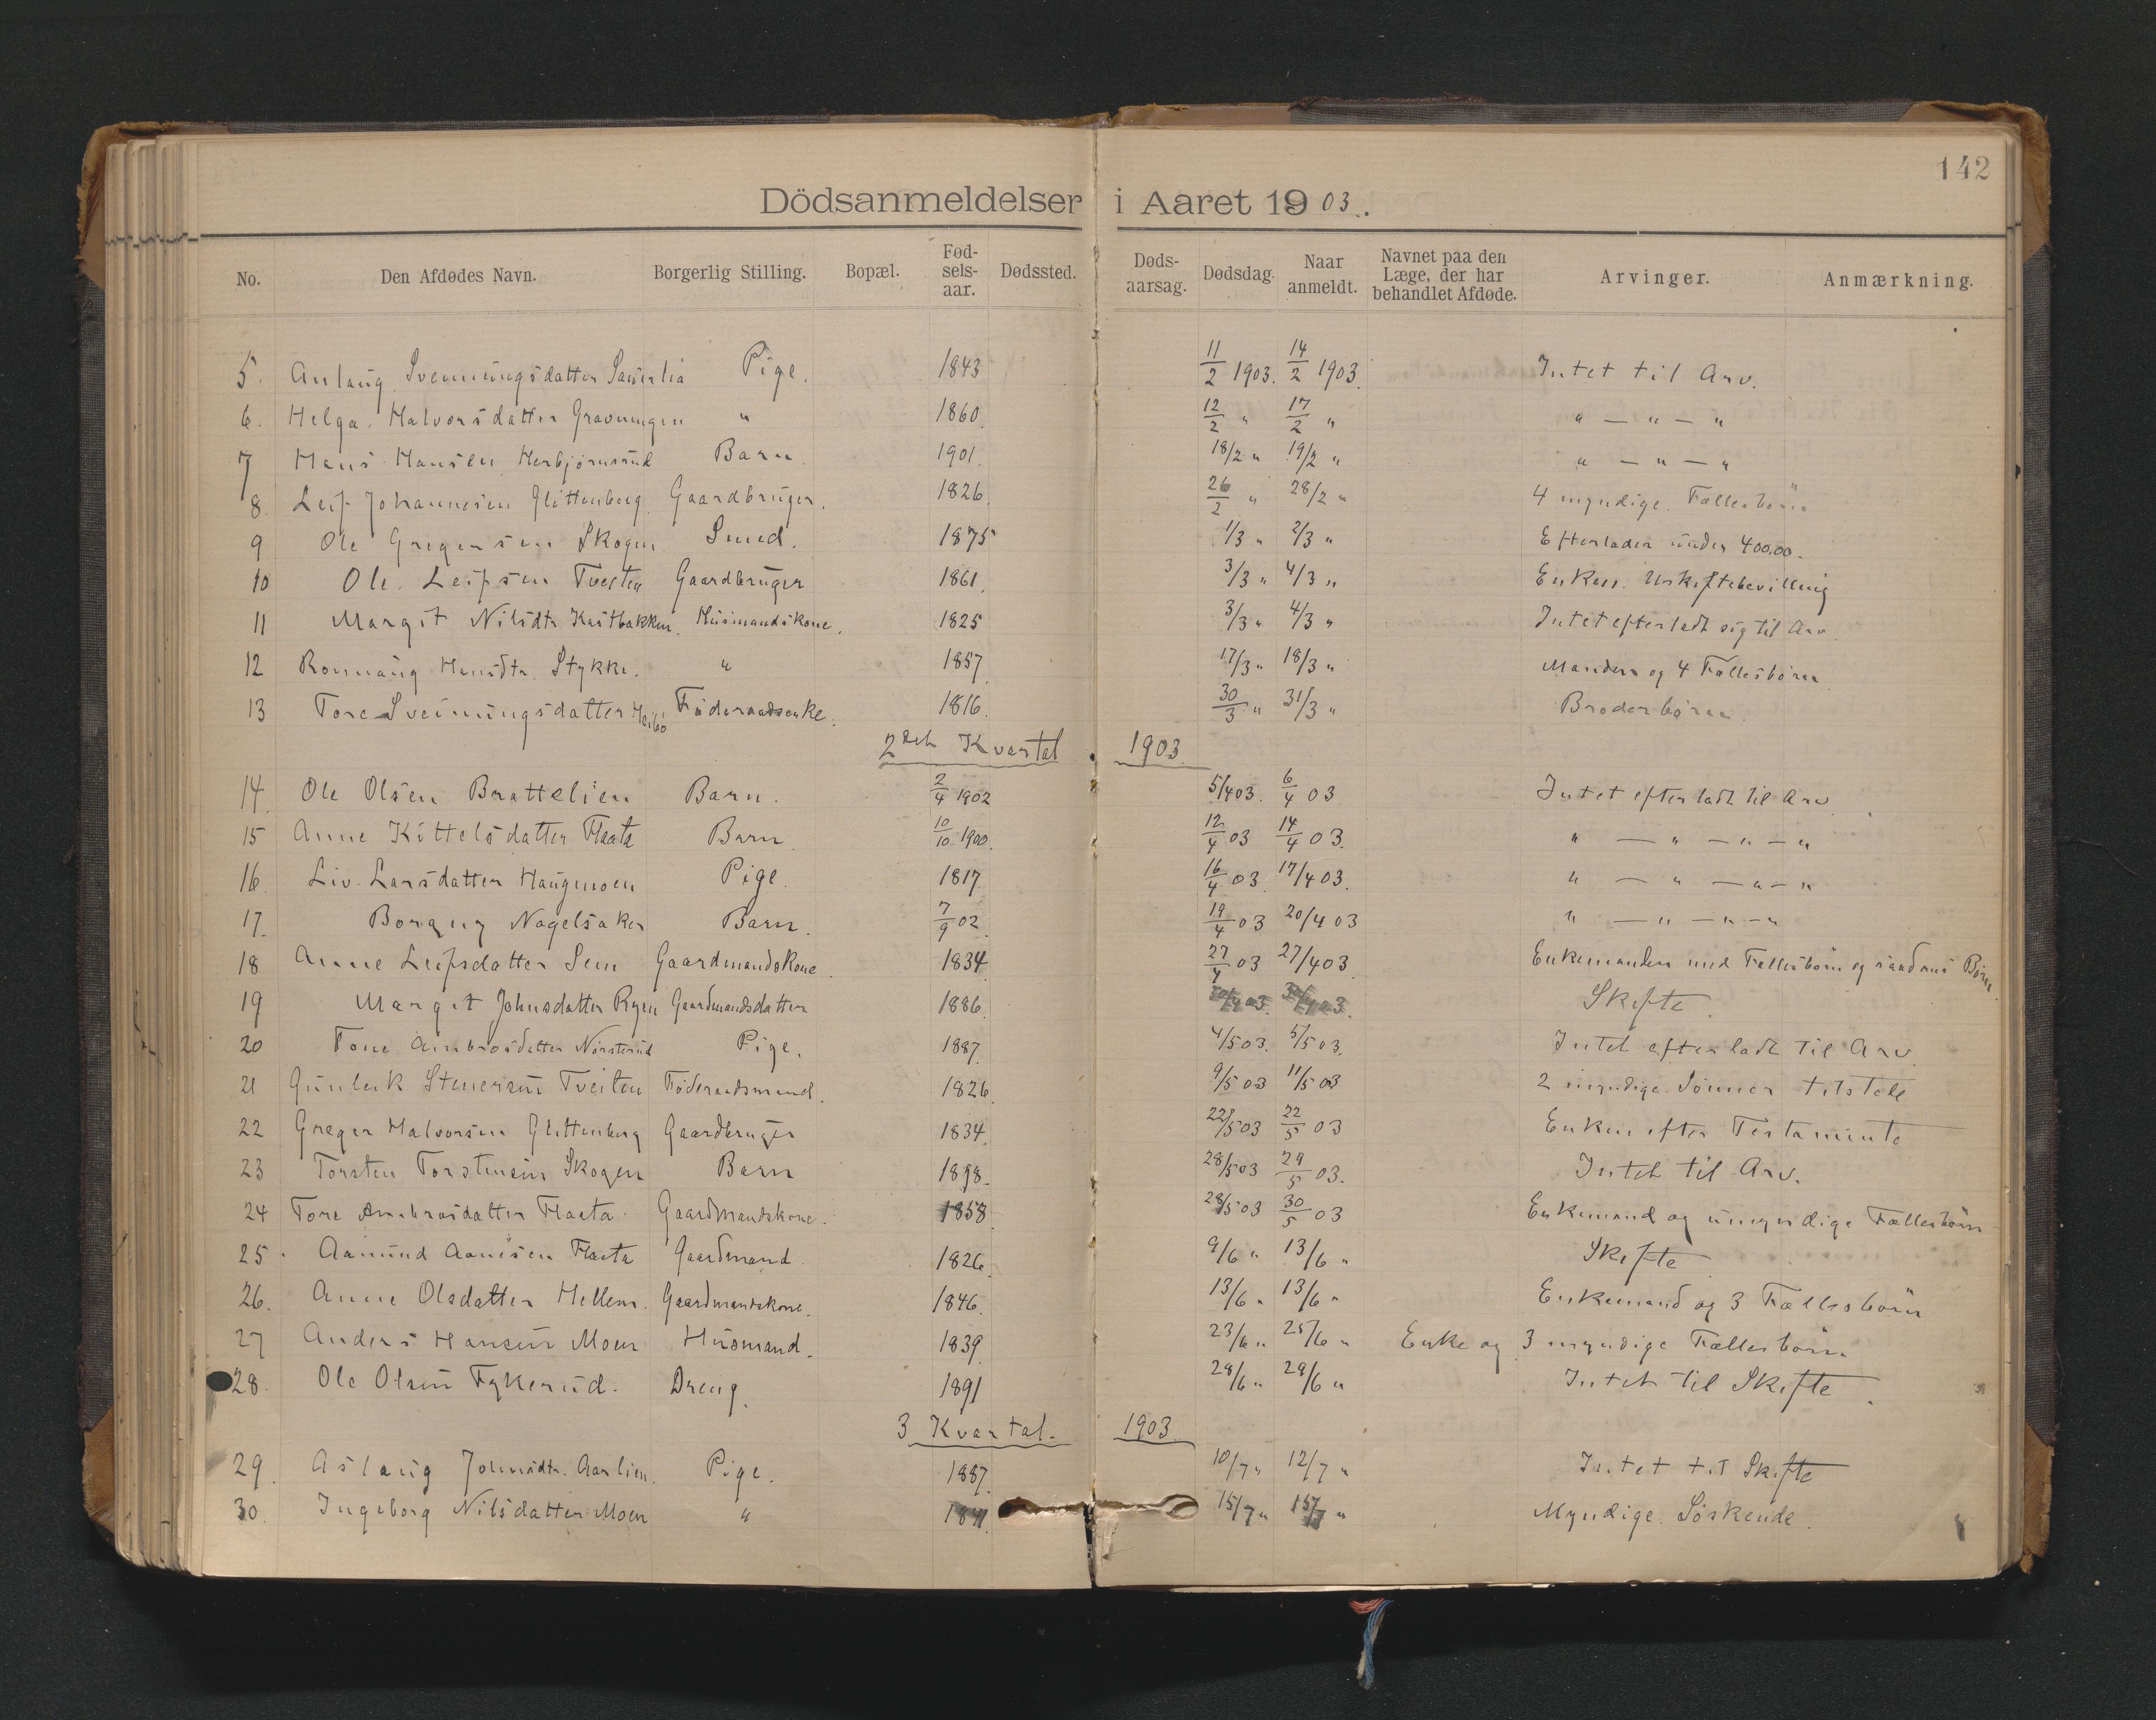 142
Dödsanmeldelser i Aaret 1903.
No. Den Afdødes Navn. Borgerlig Stilling. Bopæl. Fød-sels-aar. Dødssted. Døds-aarsag. Dødsdag. Naar anmeldt. Navnet paa den Læge, der har behandlet Afdøde. Arvinger. Anmærkning.
5. Svennungsdatter Pige. 1843 11/2 1903. 14/2 1903. Intet til Arv.
6. Helga Halvorsdatter Gravningen " 1860 12/2 " 17/2 " " — " — "
7 Hans Hansen Herbjørnsrud Barn 1901. 18/2 " 19/2 " " — " — "
8. Leif Johannesen Glittenberg Gaardbruger. 1826. 26/2 " 28/2 " 4 myndige Fællesbørn
9 Ole Gregersen Skogen Smed. 1875 1/3 " 2/3 " Efterlader under 400,00.
10 Ole Leifsen Tveiten Gaardbruger 1861. 3/3 " 4/3 " Enken. Uskiftebevilling
11 Margit Nilsdtr Kastbakken. Husmandskone. 1825 3/3 " 4/3 " Intet efterladt sig til Arv.
12 Ronnaug Hansdtr. Stykke. " 1857 17/3 " 18/3 " Manden og 4 Fællesbørn
13 Tore Sveinungsdatter Føderaadsenke. 1816. 30/3 " 31/3 " Broderbørn
2det Kvartal 1903.
14 Ole Olsen Brattelien Barn. 2/4 1902 5/4 03. 6/4 03 Intet efterladt til Arv.
15 Anne Kittelsdatter Flaata Barn. 10/10 1900. 12/4 03 14/4 03. " — " — " — "
16. Liv Larsdatter Haugmoen Pige. 1817 16/4 03. 17/4 03. " — " — " — "
17. Borgny Nagelsaker Barn. 7/9 02. 19/4 03 20/4 03 " — " — " — "
18 Anne Leifsdatter Sem Gaardmandskone. 1834 27/4 03 27/4 03. Enkemanden med Fællesbørn og Børn.
19 Margit Johnsdatter Ryen Gaardmandsdatter 1886. 30/4 03. 30/4 03. Skifte.
20 Tone Ambrosdatter Nørsterud Pige. 1887. 4/5 03. 5/5 03. Intet efterladt til Arv
21 Gunleik Steinersen Tveiten Føderaadsmand. 1826. 9/5 03 11/5 03 2 myndige Sønner tilstede
22 Greger Halvorsen Glittenberg Gaardbruger 1834. 22/5 03 22/5 03 Enken efter Testamente
23 Torsten Torstensen Skogen Barn 1898. 28/5 03 29/5 03. Intet til Arv.
24 Tore Ambrosdatter Flaata Gaardmandskone. 1858 28/5 03 30/5 03 Enkemand og umyndige Fællesbørn
25. Aamund Flaata Gaardmand 1826. 9/6 " 13/6 " Skifte
26. Anne Olsdatter Hellem. Gaardmandskone. 1846. 13/6 " 13/6 " Enkemand og 3 Fællesbørn
27 Anders Hansen Moen Husmand. 1839. 23/6 " 25/6 " Enke og 3 myndige Fællesbørn
28. Ole Olsen Fykerud. Dreng. 1891 28/6 " 29/6 " Intet til Skifte.
3 Kvartal. 1903
29. Aslaug Johnsdtr. Aarlien. Pige. 1887. 10/7 " 12/7 " Intet til Skifte
30. Ingeborg Nilsdatter Moen " 15/7 " 15/7 " Myndige Søskende.